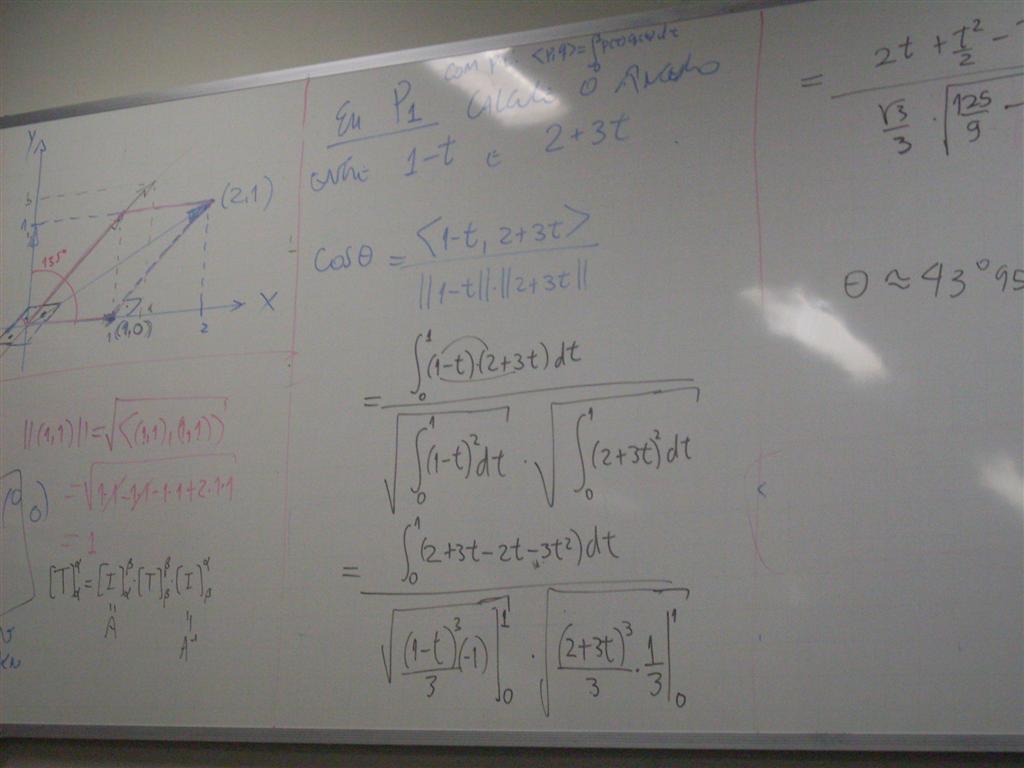 Y
(2,1)
135°
1(1,0)
2
X
||(1,1)|| = √⟨(1,1),(1,1)⟩
= √1·1-1·1-1·1+2·1·1
= 1
[T]α^α = [I]α^β·[T]β^β·[I]β^α
A
A⁻¹
com p.i. ⟨p,q⟩=∫₀¹p(t)q(t)dt
Em P₁ Calcule o Ângulo
entre 1-t e 2+3t.
Cosθ = ⟨1-t, 2+3t⟩ / ||1-t||·||2+3t||
= ∫₀¹(1-t)(2+3t)dt / √∫₀¹(1-t)²dt · √∫₀¹(2+3t)²dt
= ∫₀¹(2+3t-2t-3t²)dt / √(1-t)³/3 (-1)]₀¹ · √(2+3t)³/3 · 1/3|₀¹
= 2t + t²/2 - / √3/3 · √125/9 -
θ ≈ 43°95